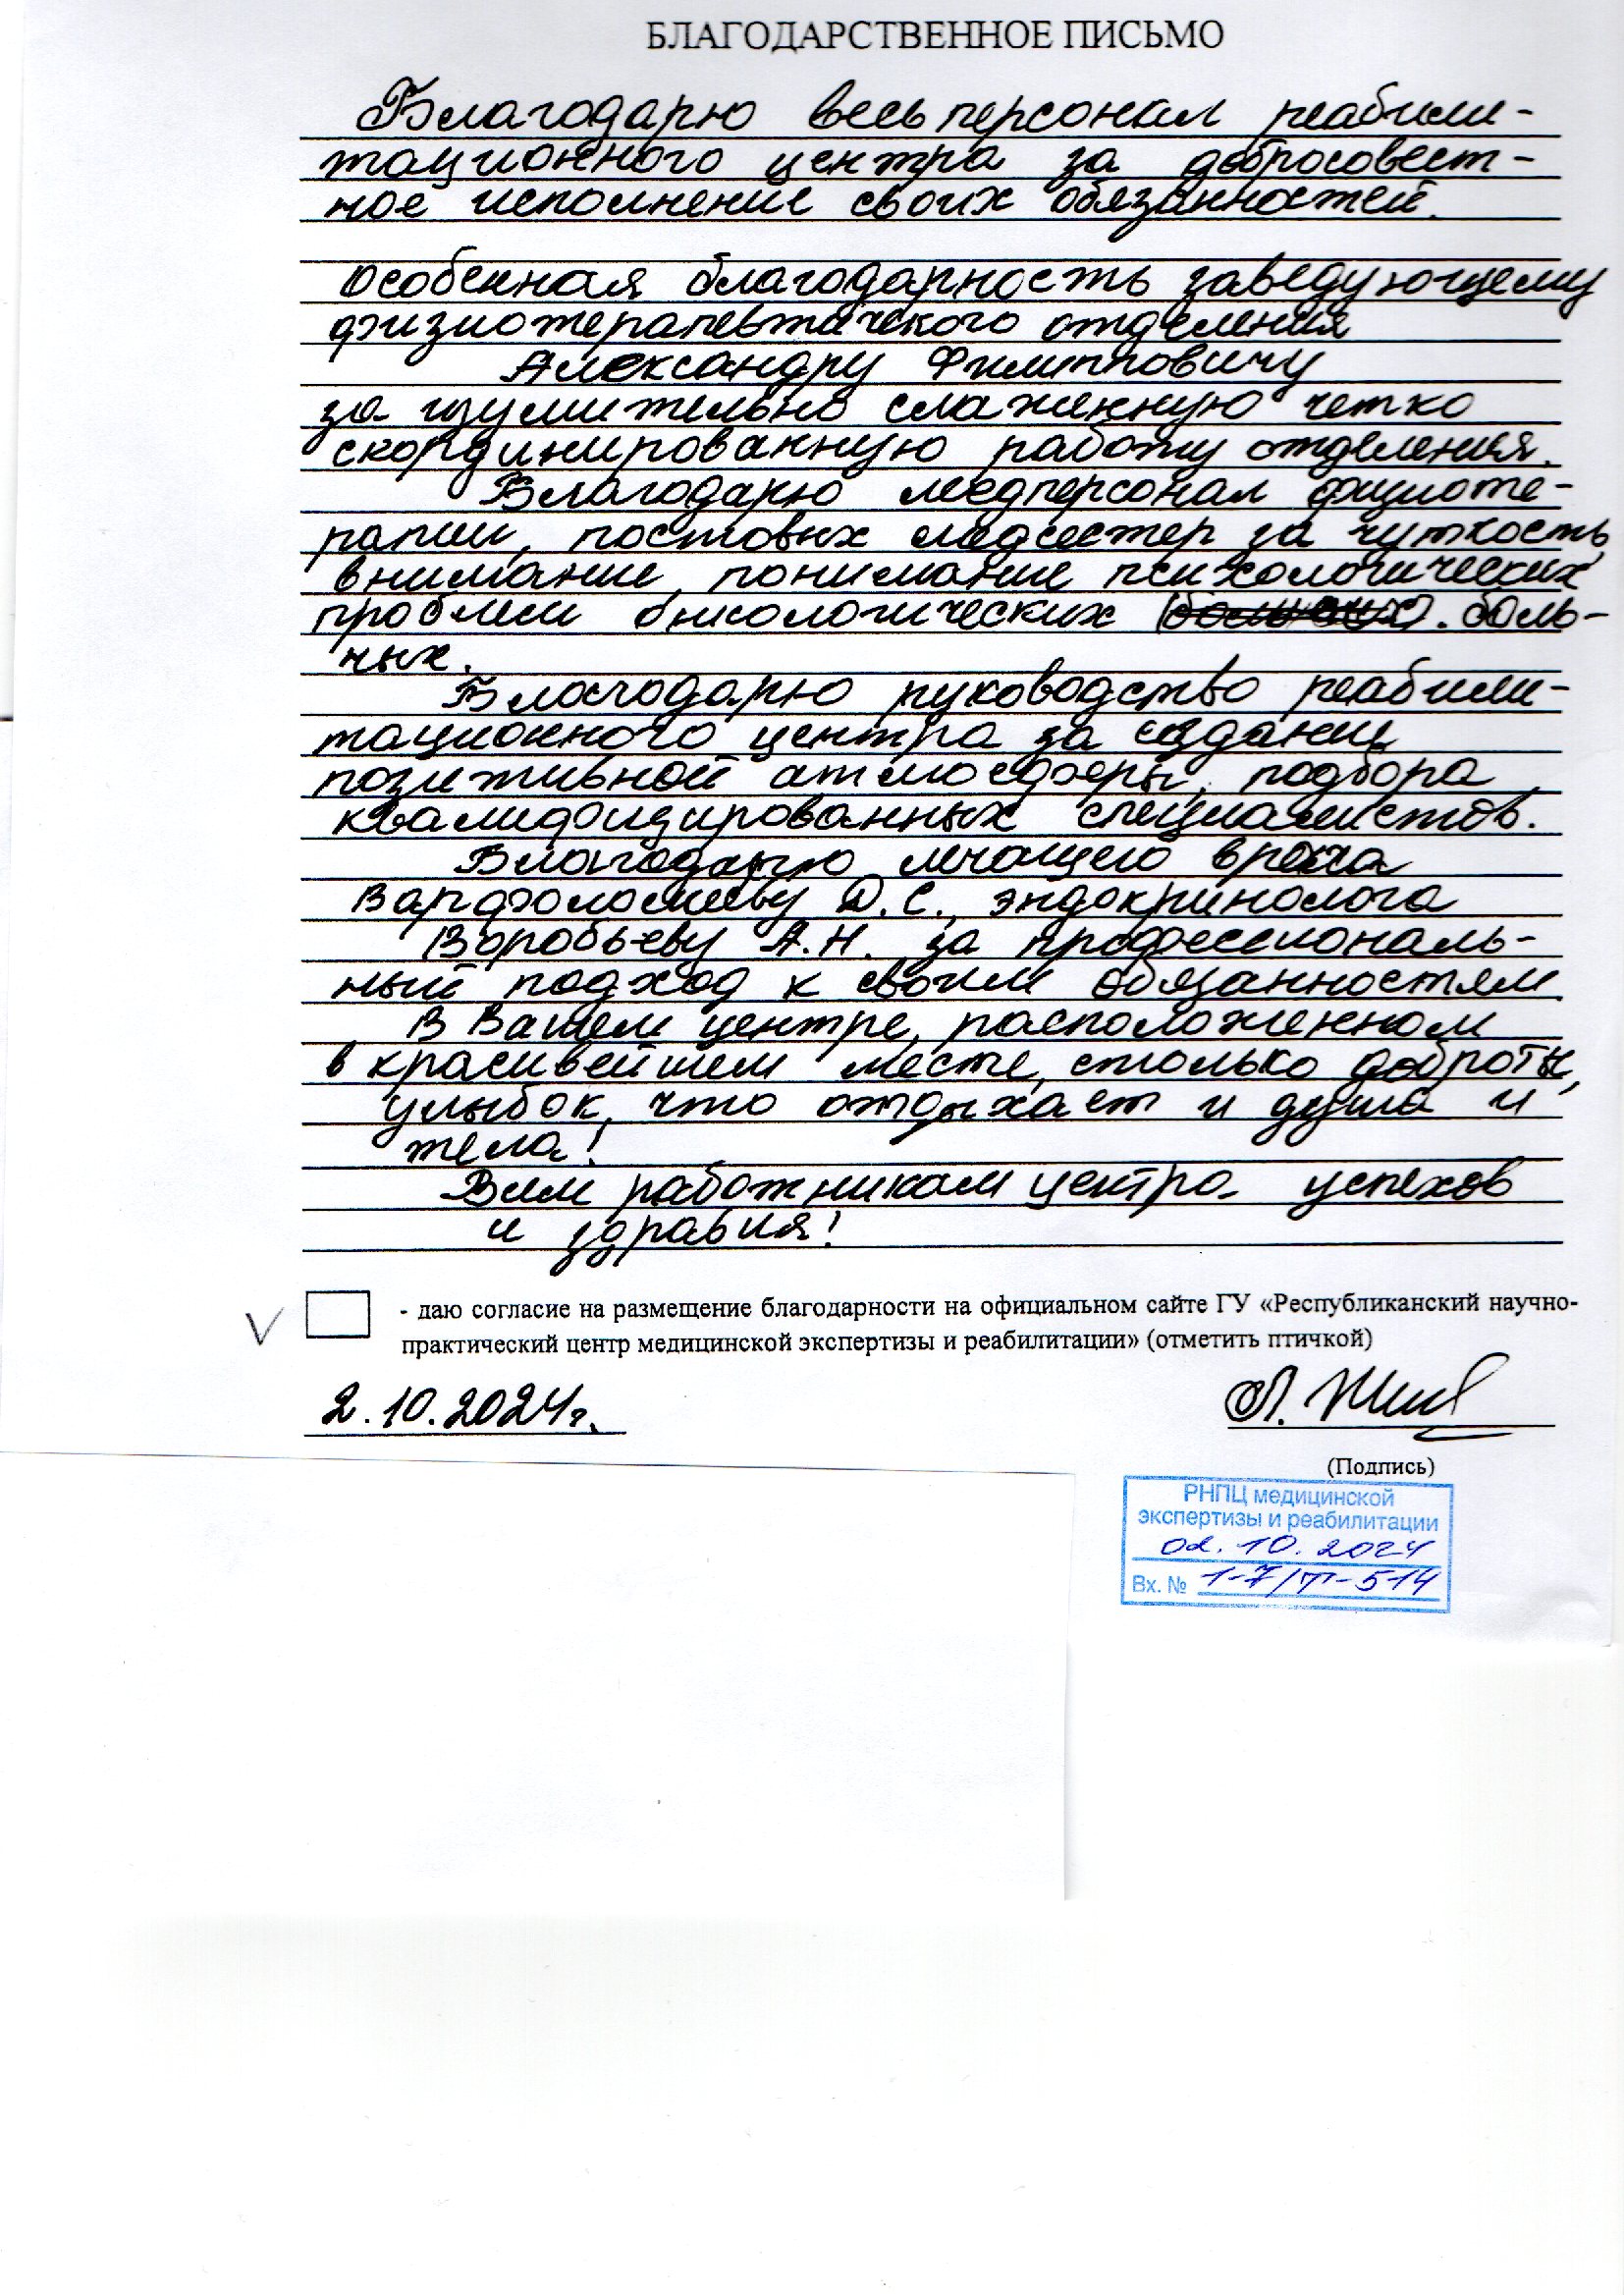 БЛАГОДАРСТВЕННОЕ ПИСЬМО
Благодарю весь персонал реабили-
тационного центра за добросовест-
ное исполнение своих обязанностей.
Особенная благодарность заведующему
физиотерапевтического отделения
Александру Филипповичу
за изумительно слаженную четко
скординированную работу отделения.
Благодарю медперсонал физиоте-
рапии, постовых медсестер за чуткость,
внимание, понимание психологических
проблем онкологических боль-
ных.
Благодарю руководство реабили-
тационного центра за создание
позитивной атмосферы, подбора
квалифицированных специалистов.
Благодарю лечащего врача
Варфоломееву Д.С., эндокринолога
Воробьеву А.Н. за профессиональ-
ный подход к своим обязанностям.
В Вашем центре, расположенном
в красивейшем месте, столько доброты,
улыбок, что отдыхает и душа и
тело!
Всем работникам центра успехов
и здравия!
V - даю согласие на размещение благодарности на официальном сайте ГУ «Республиканский научно-
практический центр медицинской экспертизы и реабилитации» (отметить птичкой)
2.10.2024г.
(Подпись)
РНПЦ медицинской
экспертизы и реабилитации
02.10.2024
Вх. № 1-7/П-514